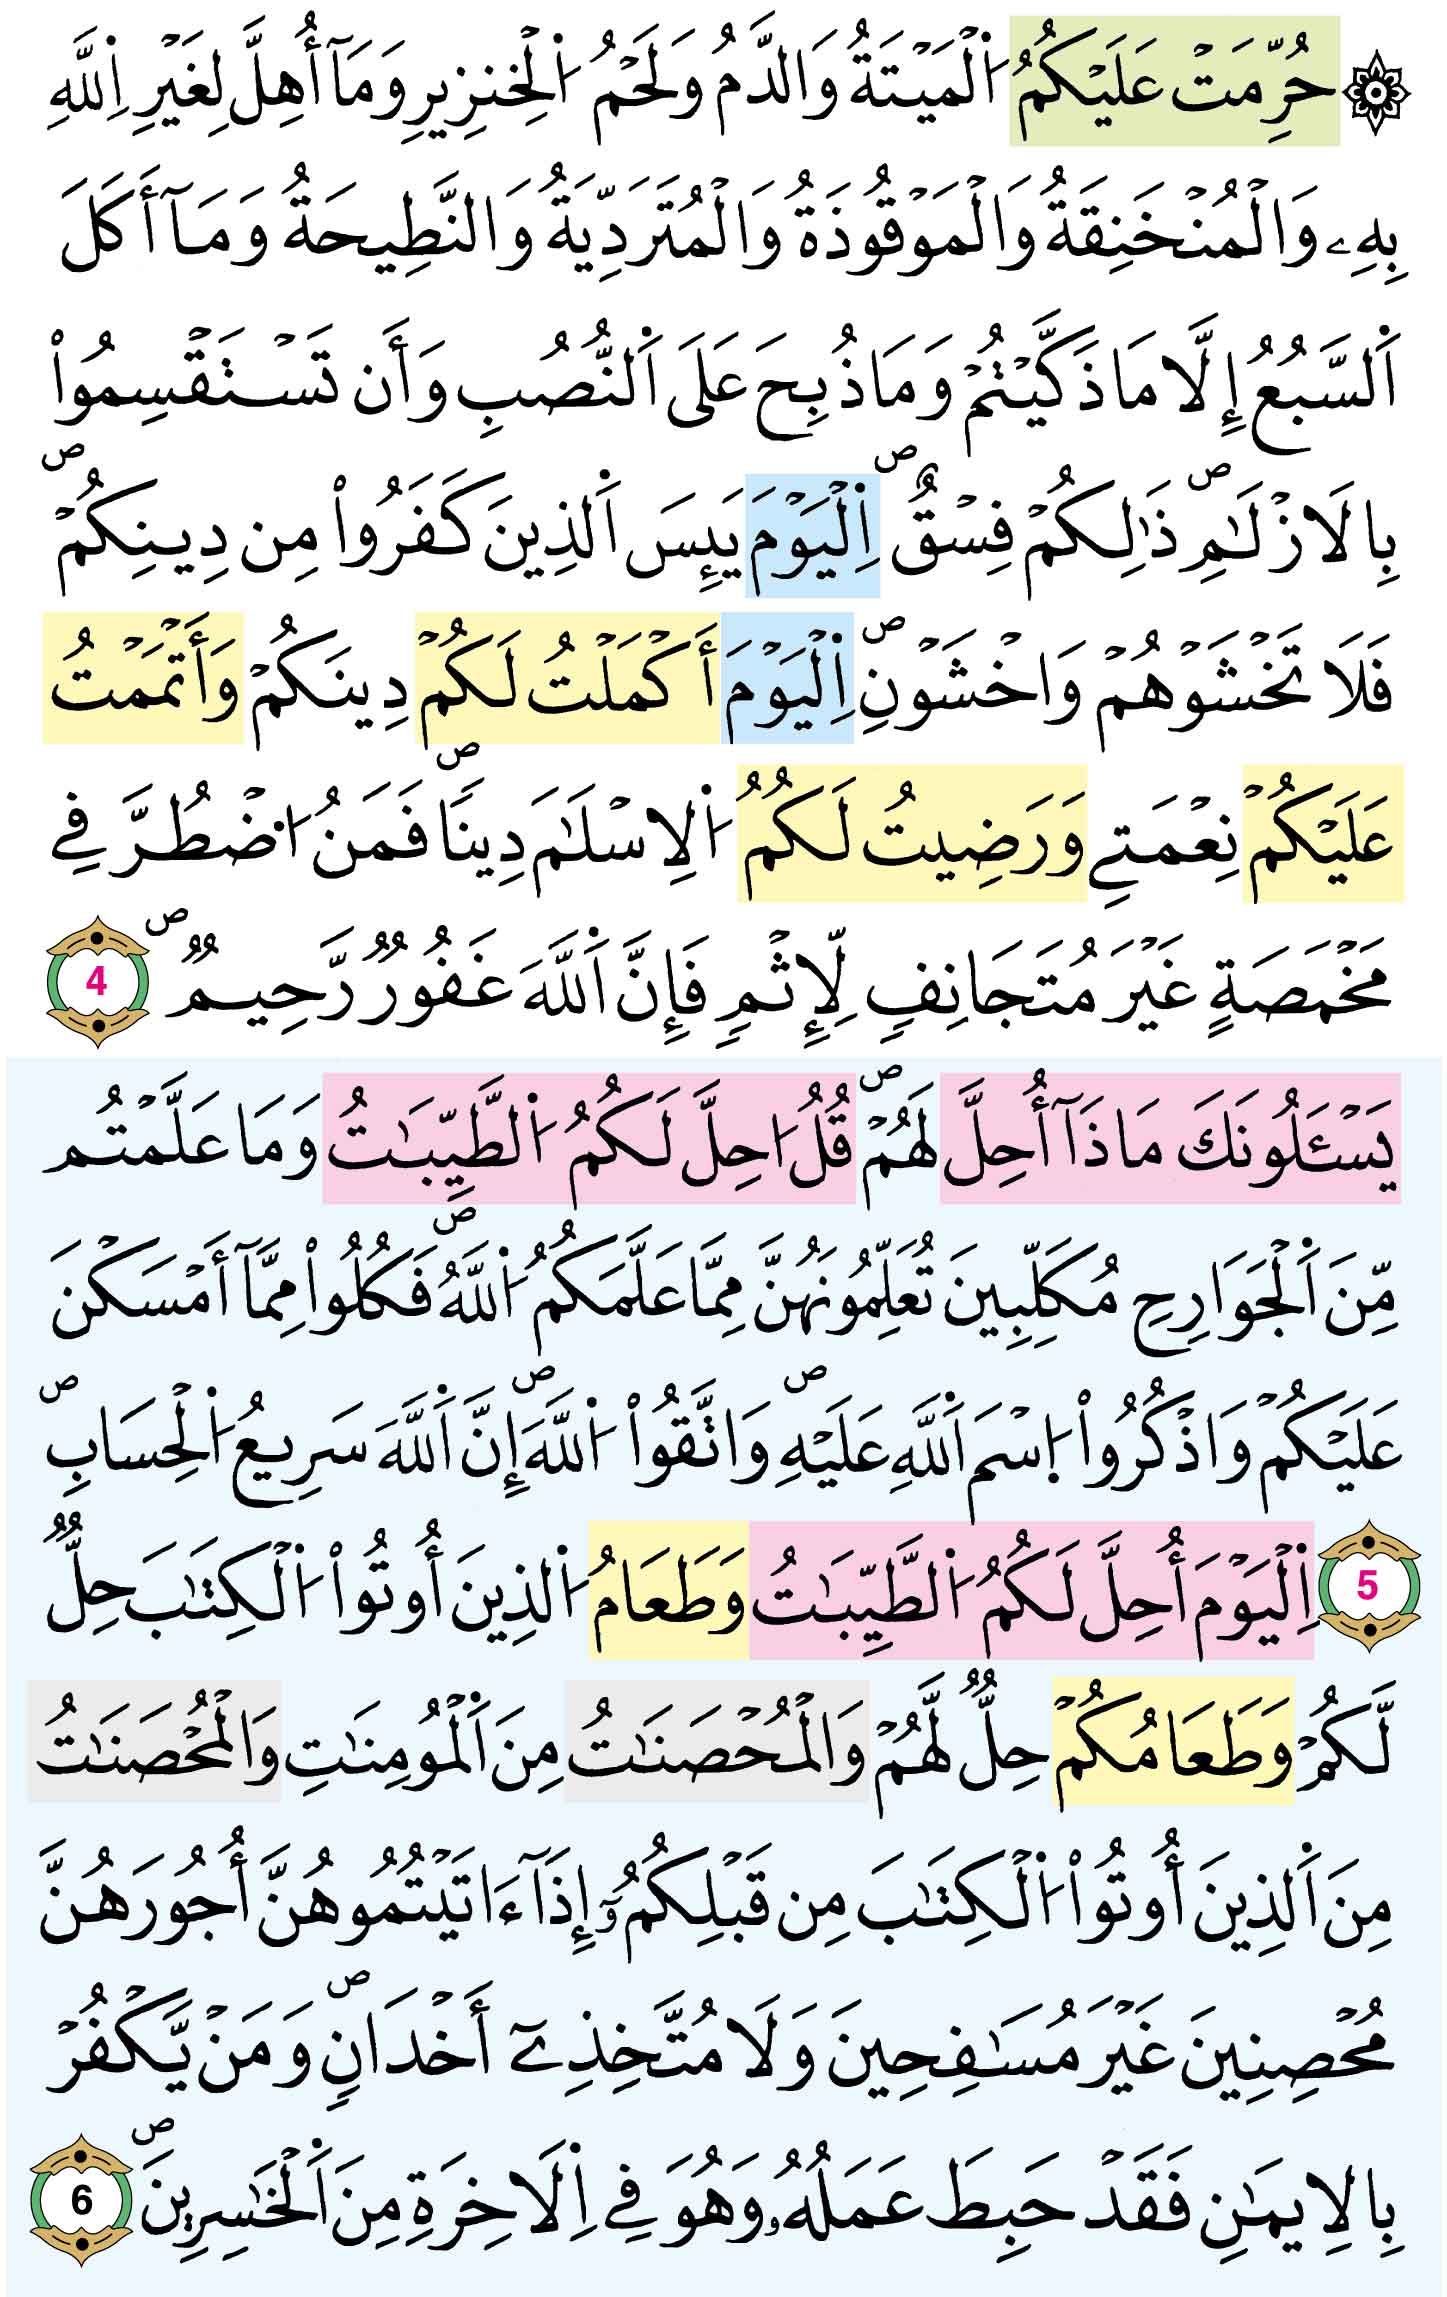 حُرِّمَتْ عَلَيْكُمُ اُ۬لْمَيْتَةُ وَالدَّمُ وَلَحْمُ اُ۬لْخِنزِيرِ وَمَآ أُهِلَّ لِغَيْرِ اِ۬للَّهِ
بِهِۦ وَالْمُنْخَنِقَةُ وَالْمَوْقُوذَةُ وَالْمُتَرَدِّيَةُ وَالنَّطِيحَةُ وَمَآ أَكَلَ
اَ۬لسَّبُعُ إِلَّا مَا ذَكَّيْتُمْ وَمَا ذُبِحَ عَلَى اَ۬لنُّصُبِ وَأَن تَسْتَقْسِمُواْ
بِالَازْلَٰمِۖ ذَٰلِكُمْ فِسْقٌۖ اِ۬لْيَوْمَ يَئِسَ اَ۬لذِينَ كَفَرُواْ مِن دِينِكُمْۖ
فَلَا تَخْشَوْهُمْ وَاخْشَوْنِۖ اِ۬لْيَوْمَ أَكْمَلْتُ لَكُمْ دِينَكُمْ وَأَتْمَمْتُ
عَلَيْكُمْ نِعْمَتِے وَرَضِيتُ لَكُمُ اُ۬لِاسْلَٰمَ دِيناٗۖ فَمَنُ اُ۟ضْطُرَّ فِے
مَخْمَصَةٍ غَيْرَ مُتَجَانِفٖ لِّإِثْمٖ فَإِنَّ اَ۬للَّهَ غَفُورٞ رَّحِيمٞۖ 4
يَسْـَٔلُونَكَ مَاذَآ أُحِلَّ لَهُمْۖ قُلُ ا۟حِلَّ لَكُمُ اُ۬لطَّيِّبَٰتُ وَمَا عَلَّمْتُم
مِّنَ اَ۬لْجَوَارِحِ مُكَلِّبِينَ تُعَلِّمُونَهُنَّ مِمَّا عَلَّمَكُمُ اُ۬للَّهُۖ فَكُلُواْ مِمَّآ أَمْسَكْنَ
عَلَيْكُمْ وَاذْكُرُواْ اُ۪سْمَ اَ۬للَّهِ عَلَيْهِۖ وَاتَّقُواْ اُ۬للَّهَۖ إِنَّ اَ۬للَّهَ سَرِيعُ اُ۬لْحِسَابِۖ
5 اِ۬لْيَوْمَ أُحِلَّ لَكُمُ اُ۬لطَّيِّبَٰتُ وَطَعَامُ اُ۬لذِينَ أُوتُواْ اُ۬لْكِتَٰبَ حِلّٞ
لَّكُمْ وَطَعَامُكُمْ حِلّٞ لَّهُمْ وَالْمُحْصَنَٰتُ مِنَ اَ۬لْمُومِنَٰتِ وَالْمُحْصَنَٰتُ
مِنَ اَ۬لذِينَ أُوتُواْ اُ۬لْكِتَٰبَ مِن قَبْلِكُمُۥٓ إِذَآ ءَاتَيْتُمُوهُنَّ أُجُورَهُنَّ
مُحْصِنِينَ غَيْرَ مُسَٰفِحِينَ وَلَا مُتَّخِذِےٓ أَخْدَانٖۖ وَمَنْ يَّكْفُرْ
بِالِايمَٰنِ فَقَدْ حَبِطَ عَمَلُهُۥ وَهُوَ فِے اِ۬لَاخِرَةِ مِنَ اَ۬لْخَٰسِرِينَۖ 6